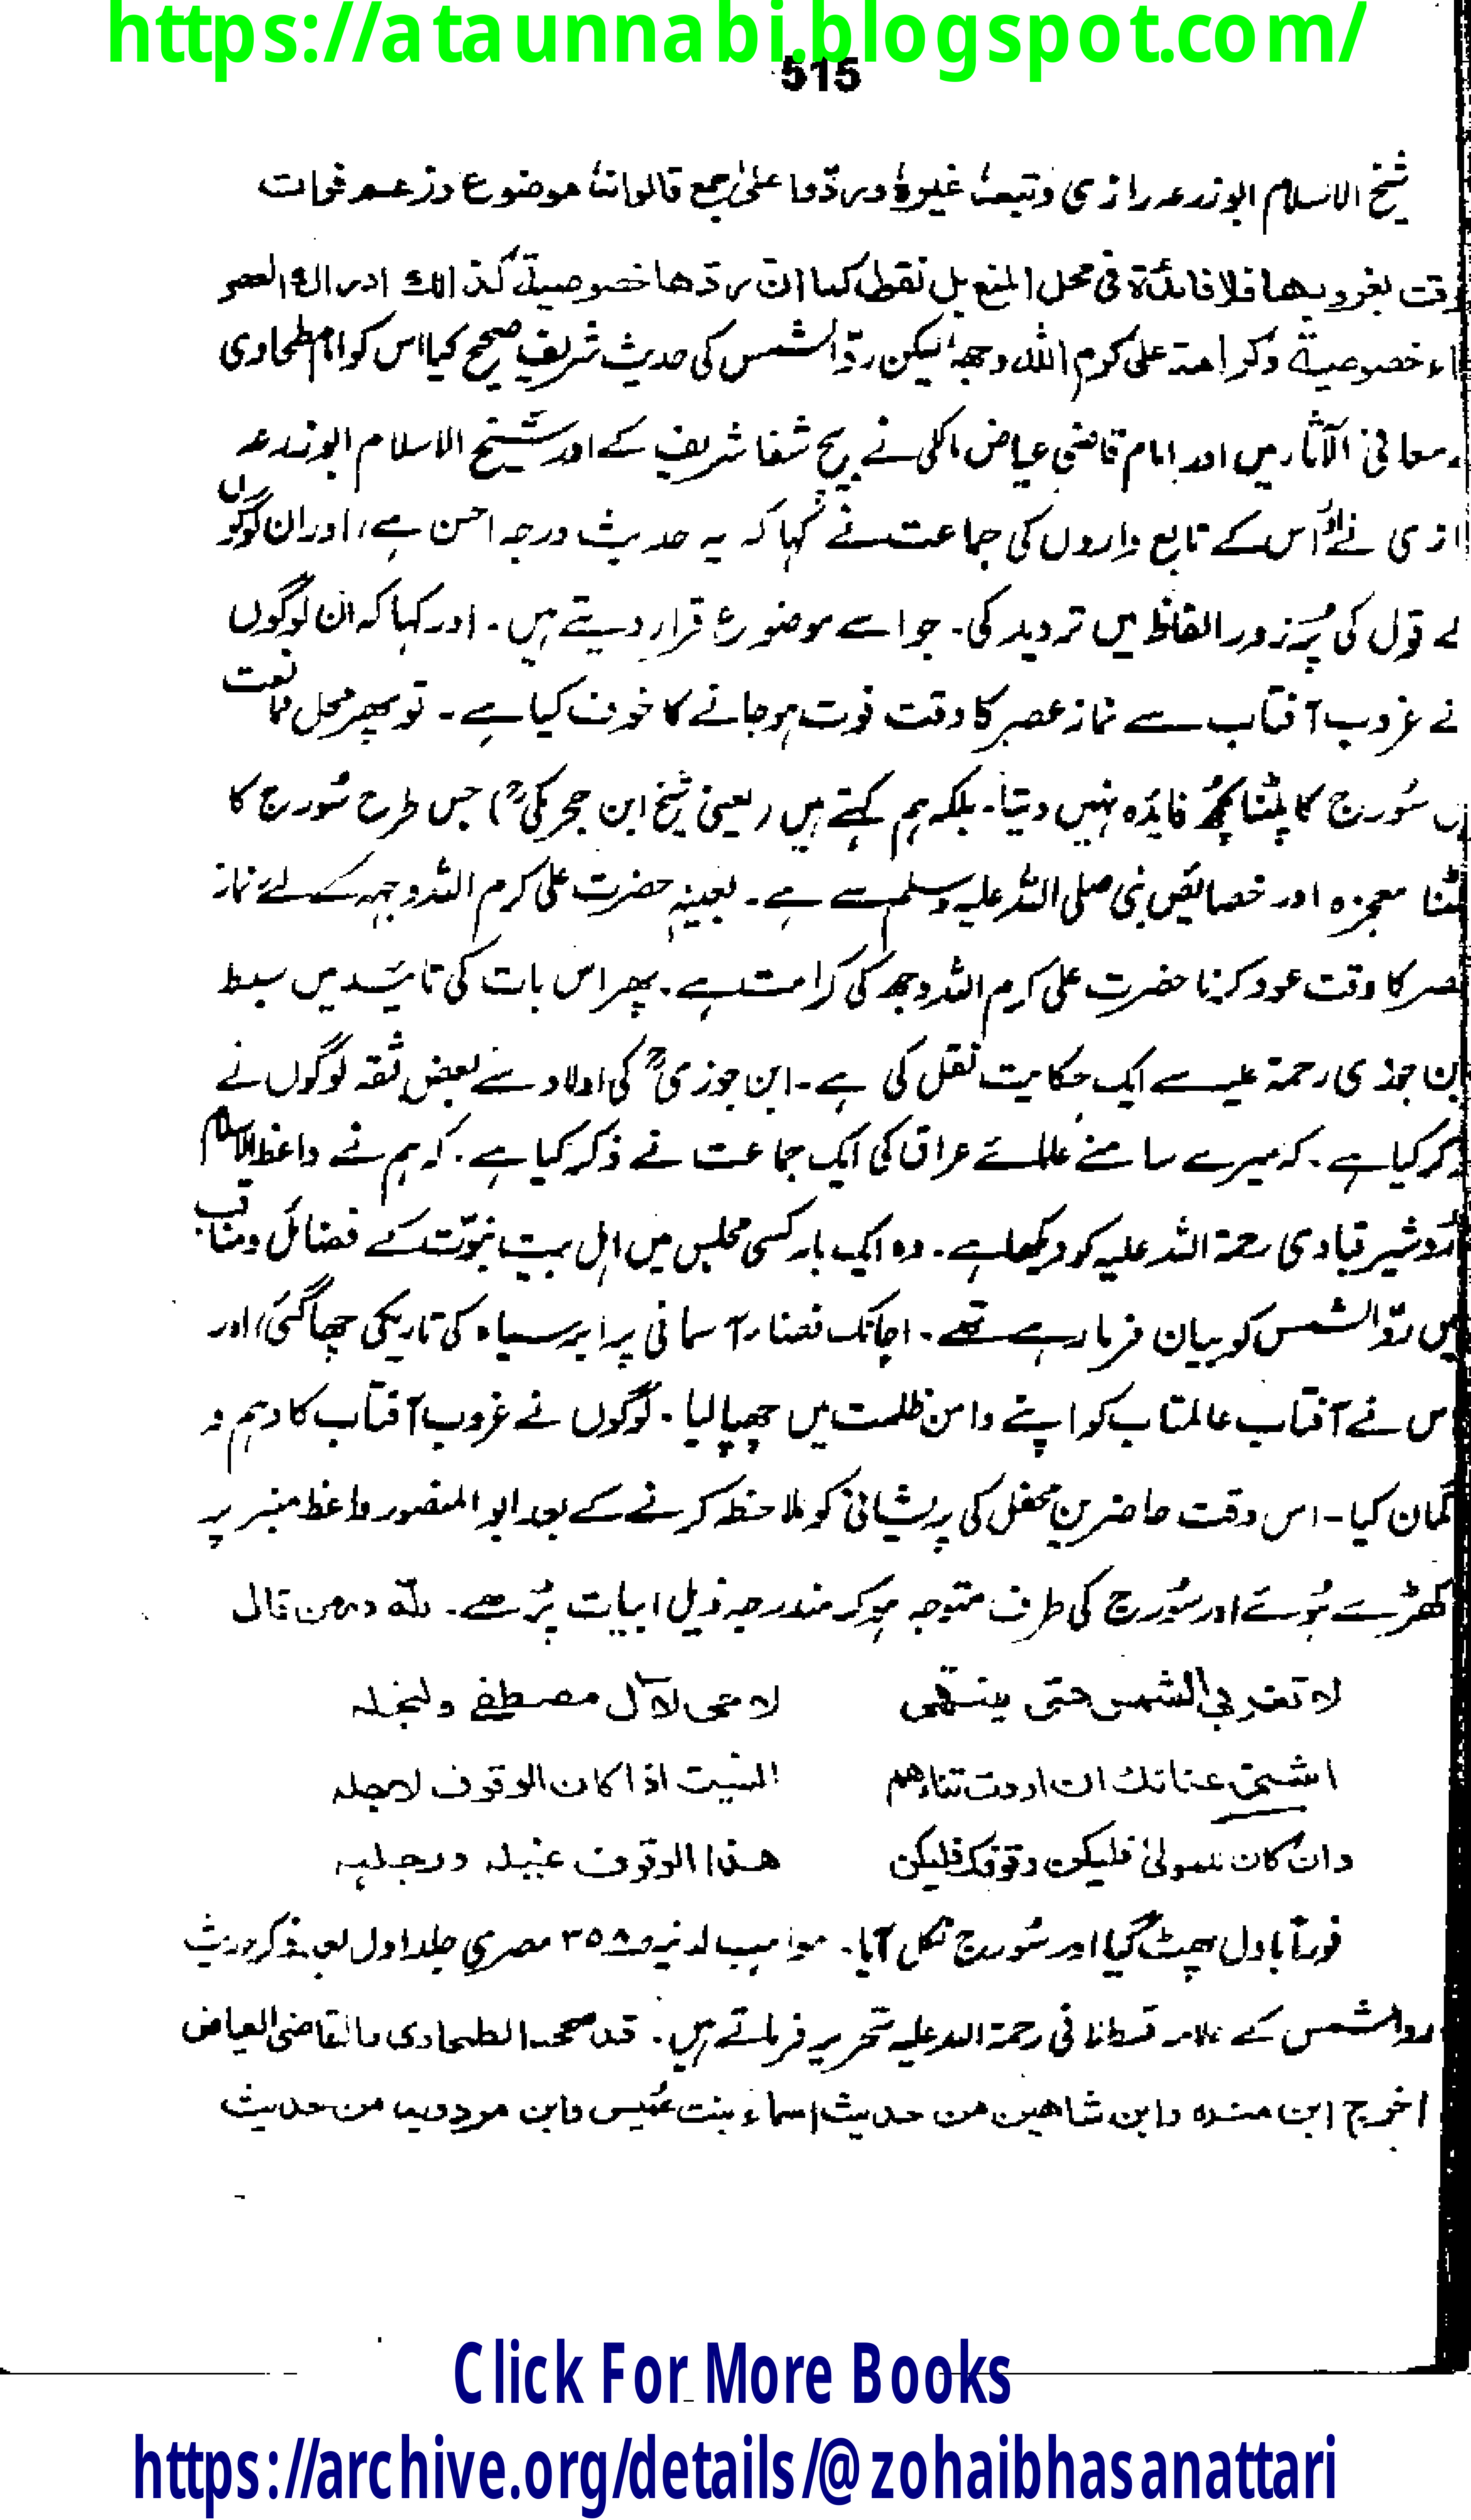 https://ataunnabi.blogspot.com/
515
شیخ الاسلام ابوزرعہ رازی وتبعہٗ غیرہٗ وردّوا علیٰ جمع قالوا انہٗ موضوع وزعم فوات
وقت بغروبھا فلا فائدۃ فی محل المنع بل نقول کما ان ردّھا خصوصیۃ کذالک ادراک العصر
اء خصوصیۃ وکرامتہ علی کرم اللہ وجھہٗ لیکن ردّ الشمس کی حدیث شریف صحیح کیا اس کو امام طحاوی
معانی الآثار میں اور امام قاضی عیاض مالکی نے بیچ شفا شریف کے اور شیخ الاسلام ابوزرعہ
ازی نے اور اُس کے تابع داروں کی جماعت نے کہا کہ یہ حدیث درجہ احسن ہے، اور ان لوگوں
کے قول کی پُرزور الفاظ میں تردید کی۔ جو اسے موضوع قرار دیتے ہیں۔ اور کہا کہ ان لوگوں
نے غروب آفتاب سے نماز عصر کا وقت فوت ہو جانے کا خوف کیا ہے۔ تو پھر محل ممانعت
ں سُورج کا پلٹنا کچھُ فائدہ نہیں دیتا۔ بلکہ ہم کہتے ہیں (یعنی شیخ ابن حجر مکیؒ) جس طرح سُورج کا
لٹنا معجزہ اور خصائص نبی صلی اللہ علیہ وسلم سے ہے۔ بعینہٖ حضرت علی کرم اللہ وجہہ کے لئے نماز
عصر کا وقت عود کرنا حضرت علی کرم اللہ وجھہ کی کرامت ہے۔ پھر اس بات کی تائید میں سبط
بن جوزی رحمۃ علیہ سے ایک حکایت نقل کی ہے۔ ابن جوزیؒ کی اولاد سے بعض ثقہ لوگوں نے
ذکر کیا ہے۔ کہ میرے سامنے علمائے عراق کی ایک جماعت نے ذکر کیا ہے۔ کہ ہم نے واعظ الاسلام
اردشیر قبادی رحمۃ اللہ علیہ کو دیکھا ہے۔ وہ ایک بار کسی مجلس میں اہل بیت نبوّت کے فضائل ومناقب
میں ردّ الشمس کو بیان فرما رہے تھے۔ اچانک فضاء آسمانی پر ابر سیاہ کی تاریکی چھا گئی، اور
اس نے آفتاب عالمتاب کو اپنے دامن ظلمت میں چھپا لیا۔ لوگوں نے غروب آفتاب کا وہم و
گمان کیا۔ اس وقت حاضرین محفل کی پریشانی کو ملاحظہ کرنے کے بعد ابو المنصور واعظ منبر پر
کھڑے ہُوئے اور سُورج کی طرف متوجہ ہو کر مندرجہ ذیل ابیات پڑھے۔ للّٰہ در من قال
لا تغربی الشمس حتی ینتھی لا مدحی لآل مصطفےٰ ولنجلہ
اشتی عنانک ان اردت ثناءھم انسیت اذا کان الوقوف لاجلہ
وان کان للمولیٰ فلیکن وقوفک فلیکن ھذا الوقوف
فوراً بادل پھٹ گیا اور سُورج نکل آیا۔ مواہب لدنیہ ص ۳۵۸ مصری جلد اول بعد ذکر حدیث
ردالشمس کے علامہ قسطلانی رحمۃ اللہ علیہ تحریر فرماتے ہیں۔ قد صححہ الطحاوی والقاضی العیاض
اخرج ابن مندہ وابن شاھین من حدیث اسماء بنت عُمیس وابن مردویہ من حدیث
Click For More Books
https://archive.org/details/@zohaibhasanattari